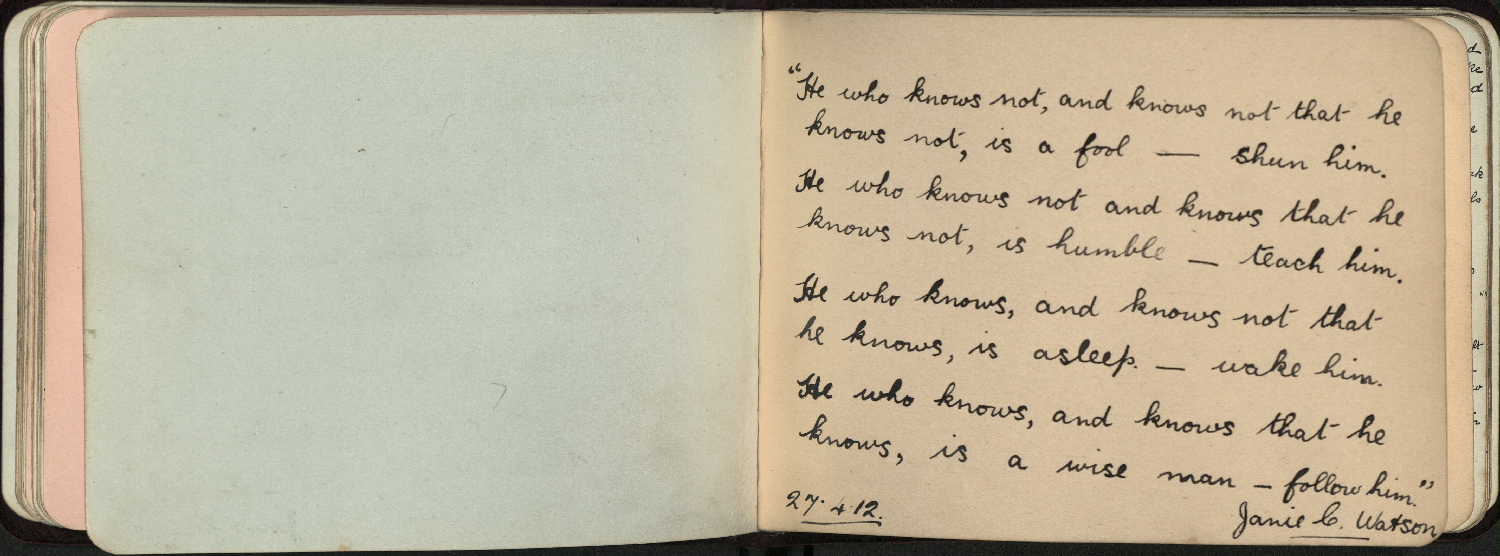 "He who knows not, and knows not that he
knows not, is a fool — shun him.
He who knows not and knows that he
knows not, is humble — teach him.
He who knows, and knows not that
he knows, is asleep. — wake him.
He who knows, and knows that he
knows, is a wise man — follow him."
27.4.12.
Janie C. Watson